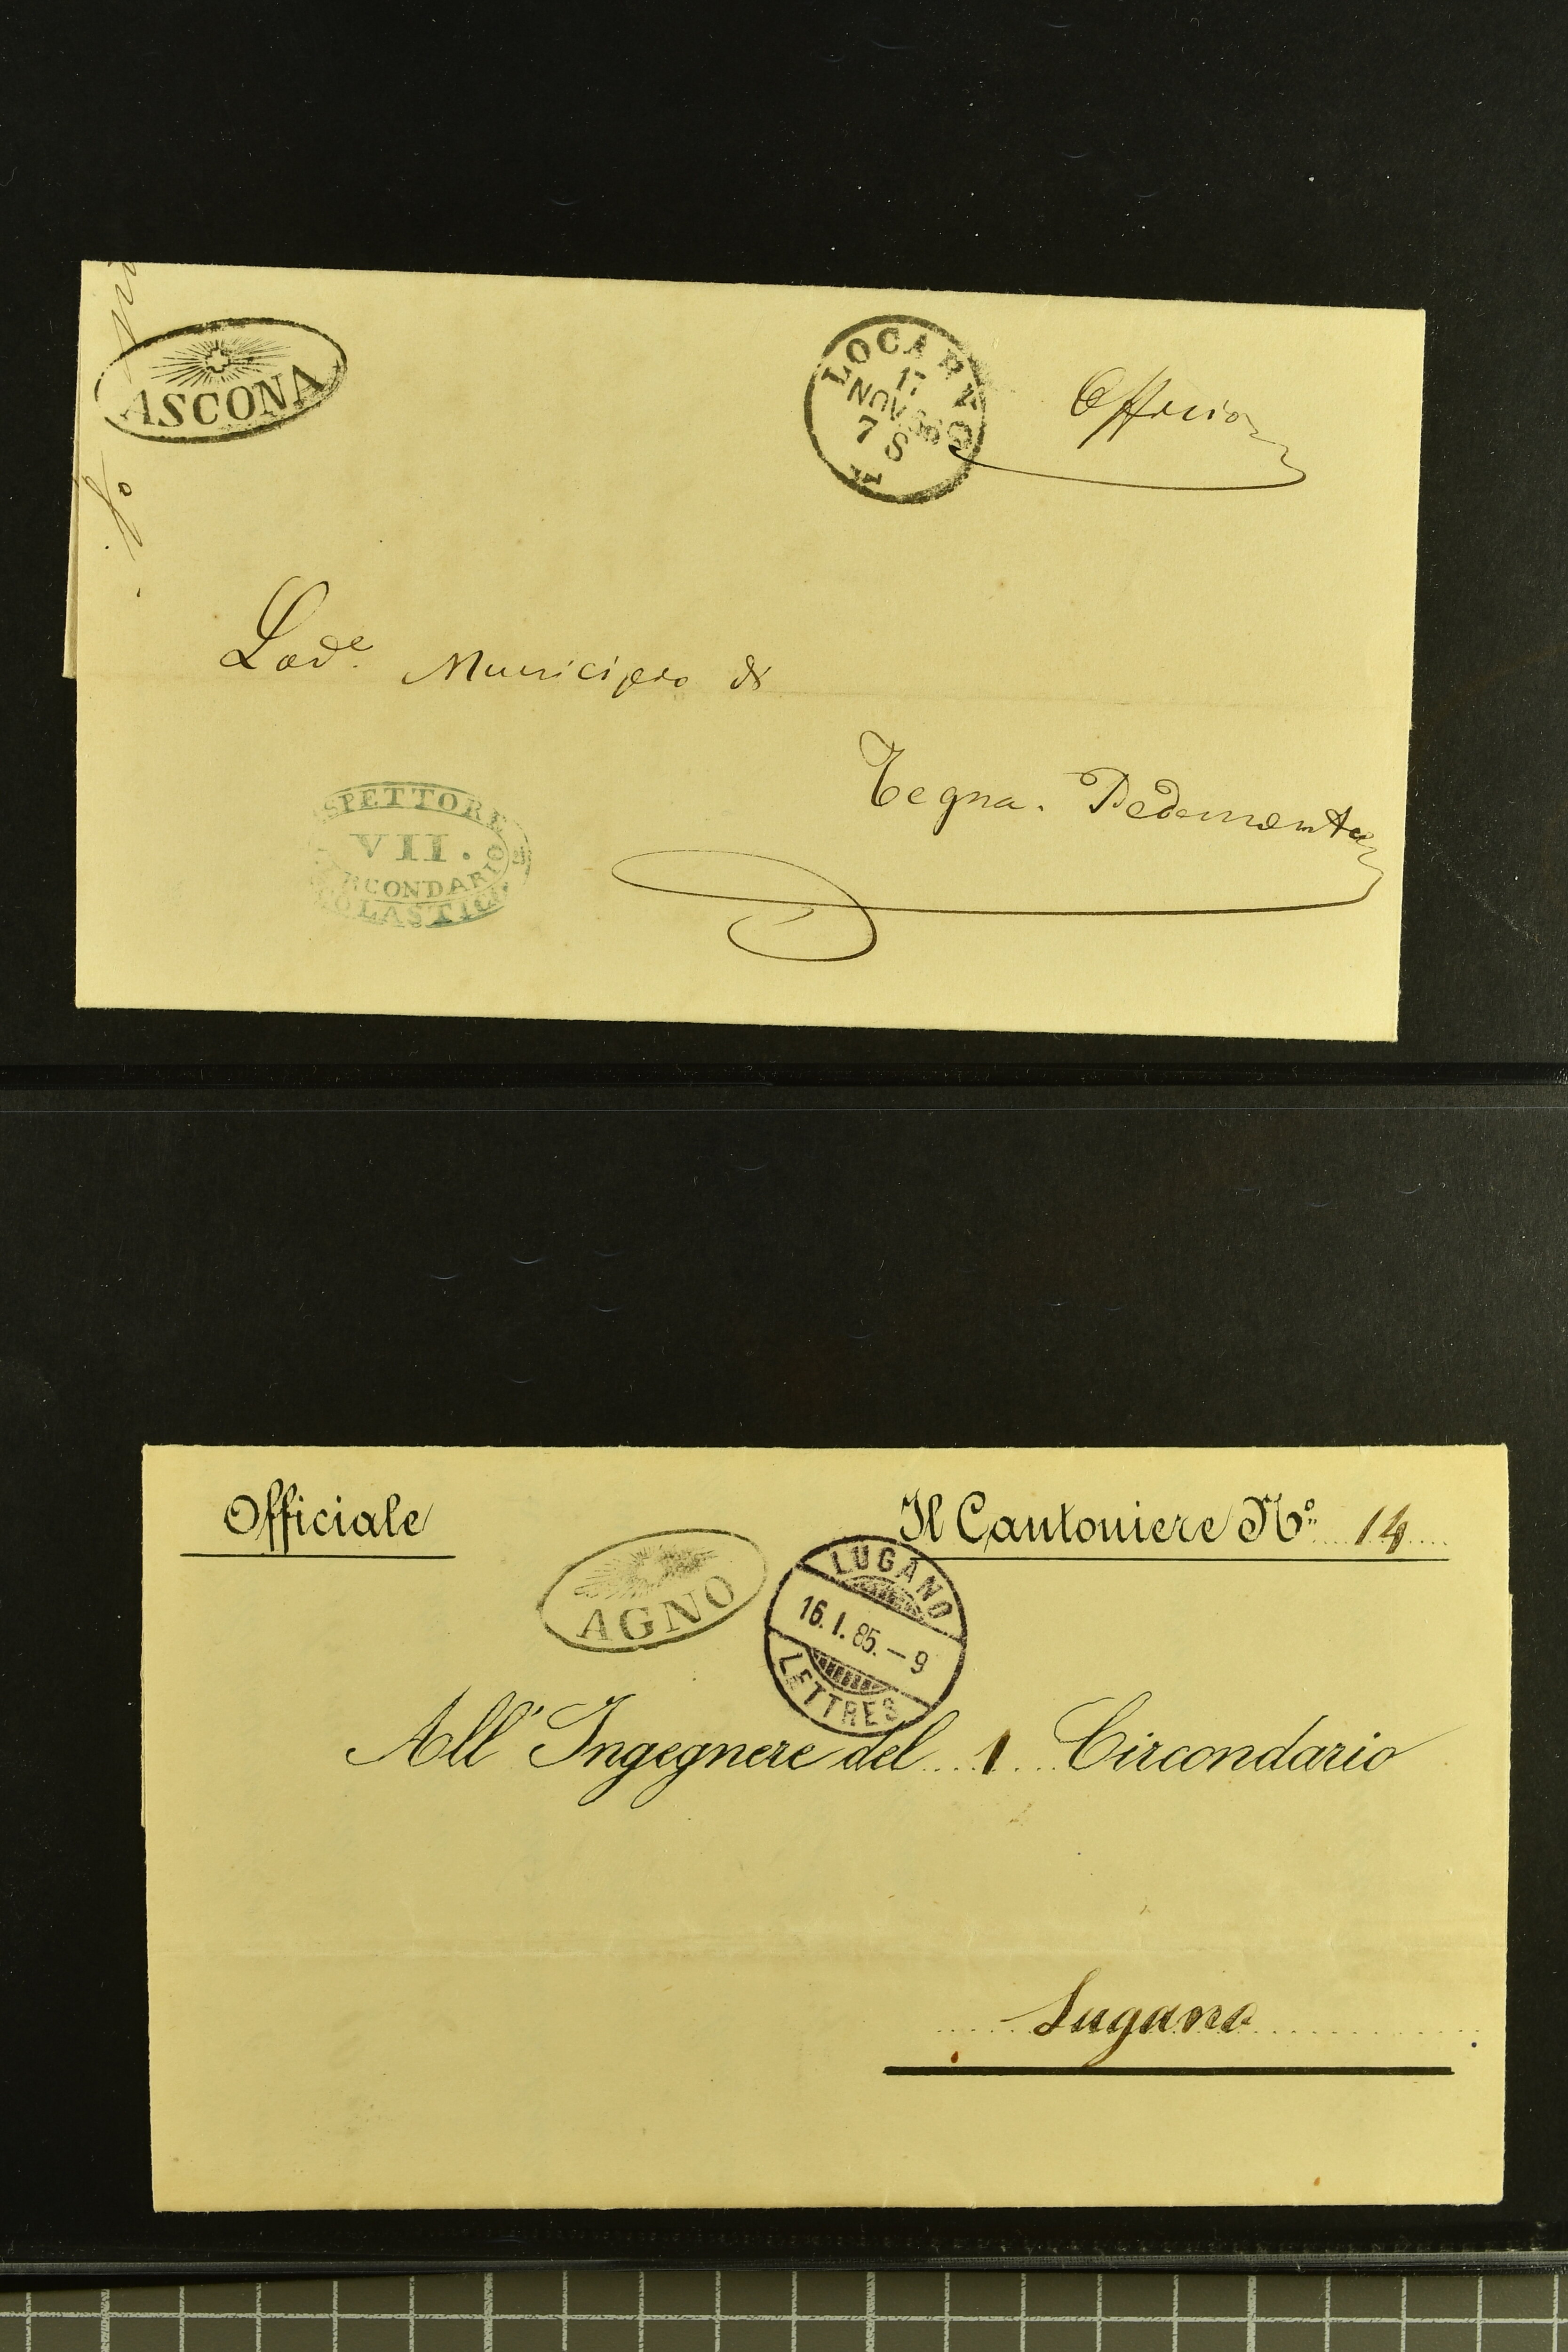 ASCONA
LOCARNO
17
NOV
7 S
Officio
No
Lode. Municipio di
Tegna. Pedemonte
SPETTORE
VII.
RCONDARIO
OLASTICO
Officiale
Il Cantoniere No. 14
AGNO
LUGANO
16.I.85.–9
LETTRES
All'Ingegnere del 1 Circondario
Lugano